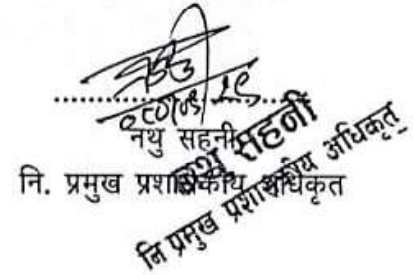 नथु सहनी
नि. प्रमुख प्रशासकीय अधिकृत
नथु सहनी
नि प्रमुख प्रशासकीय अधिकृत